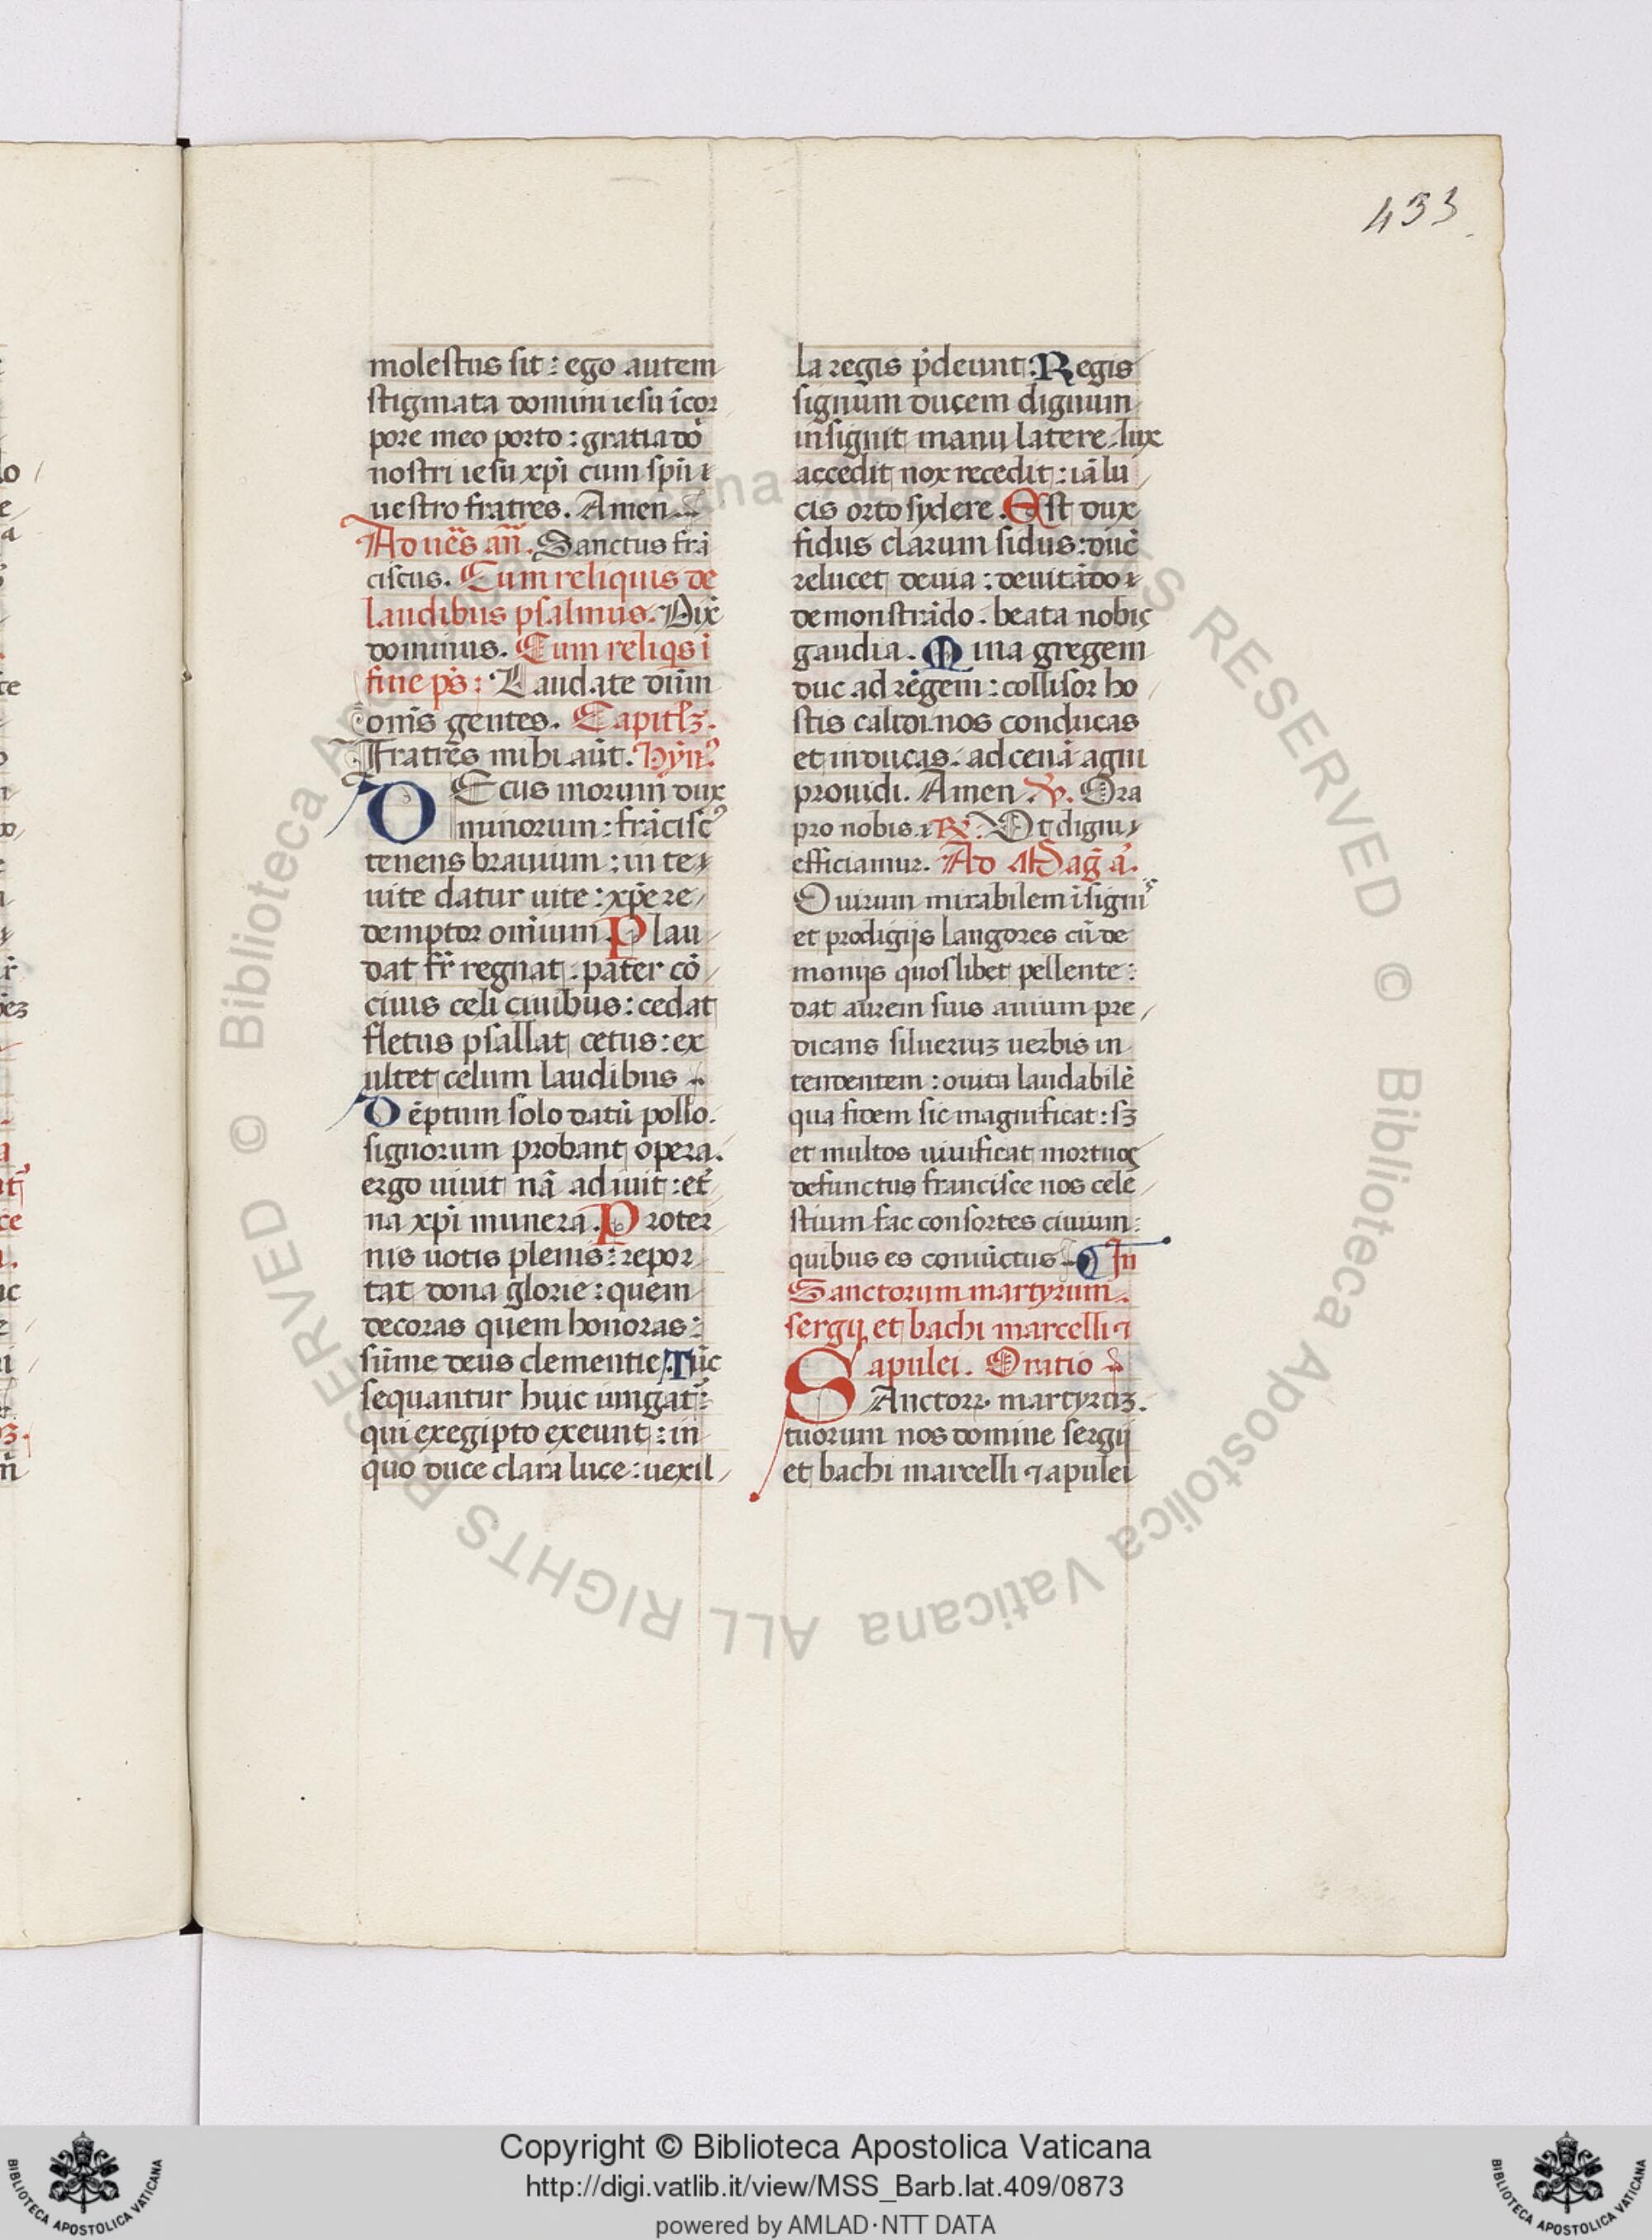 433
molestus sit: ego autem
stigmata domini iesu ī cor
pore meo porto: gratia do
nostri iesu xpi cum spū
uestro fratres. Amen
Ad ues an̄. Sanctus frā
ciscus. Cum reliquis de
laudibus psalmus. Dix
dominus. Cum reliqs ī
fine ps: Laudate dūm
oms gentes. Capitlꝫ.
Fratres mihi aut. Hyn
DEcus morum dux
minorum: frācisc
tenens brauium: in te
uite datur uite: xpe re
demptor omium. Plau
dat fr regnat: pater cō
ciuis celi ciuibus: cedat
fletus psallat cetus: ex
ultet celum laudibus
Demptum solo datū pollo.
signorum probant opera.
ergo uiuit nā adiuit: et
na xpi munera. Proter
nis uotis plenis: repor
tat dona glorie: quem
decoras quem honoras:
sūme deus clementie. Tūc
sequantur huic iungat
qui exegipto exeunt: in
quo duce clara luce: uexil
la regis pdeunt: Regis
signum ducem dignum
insignit manu latere. lux
accedit nox recedit: iā lu
cis orto sydere. Est dux
fidus clarum sidus: duc
relucet deuia: deuitādo
demonstrādo. beata nobis
gaudia. Mina gregem
duc ad regem: collisor ho
stis calidi. nos conducas
et inducas. ad cenā agni
prouidi. Amen. ℣. Ora
pro nobis. ℟. Ut digni
efficiamur. Ad Maḡ ā.
O uirum mirabilem ī signis
et prodigijs langores cū de
monijs quoslibet pellente:
dat aurem suis auium pre
dicans siluerius uerbis in
tendentem: o uita laudabile
qua fidem sic magnificat: sꝫ
et multos uiuificat mortuos
defunctus francisce nos cele
stium fac consortes ciuium:
quibus es coniūctus. In
Sanctorum martyrum.
sergij et bachi marcelli ⁊
apulei. Oratio
SAnctoꝝ martyrūꝫ.
tuorum nos domine sergij
et bachi marcelli ⁊ apulei
© Biblioteca Apostolica Vaticana ALL RIGHTS RESERVED © Biblioteca Apostolica Vaticana ALL RIGHTS RESERVED
Copyright © Biblioteca Apostolica Vaticana
http://digi.vatlib.it/view/MSS_Barb.lat.409/0873
powered by AMLAD·NTT DATA
BIBLIOTECA APOSTOLICA VATICANA
BIBLIOTECA APOSTOLICA VATICANA